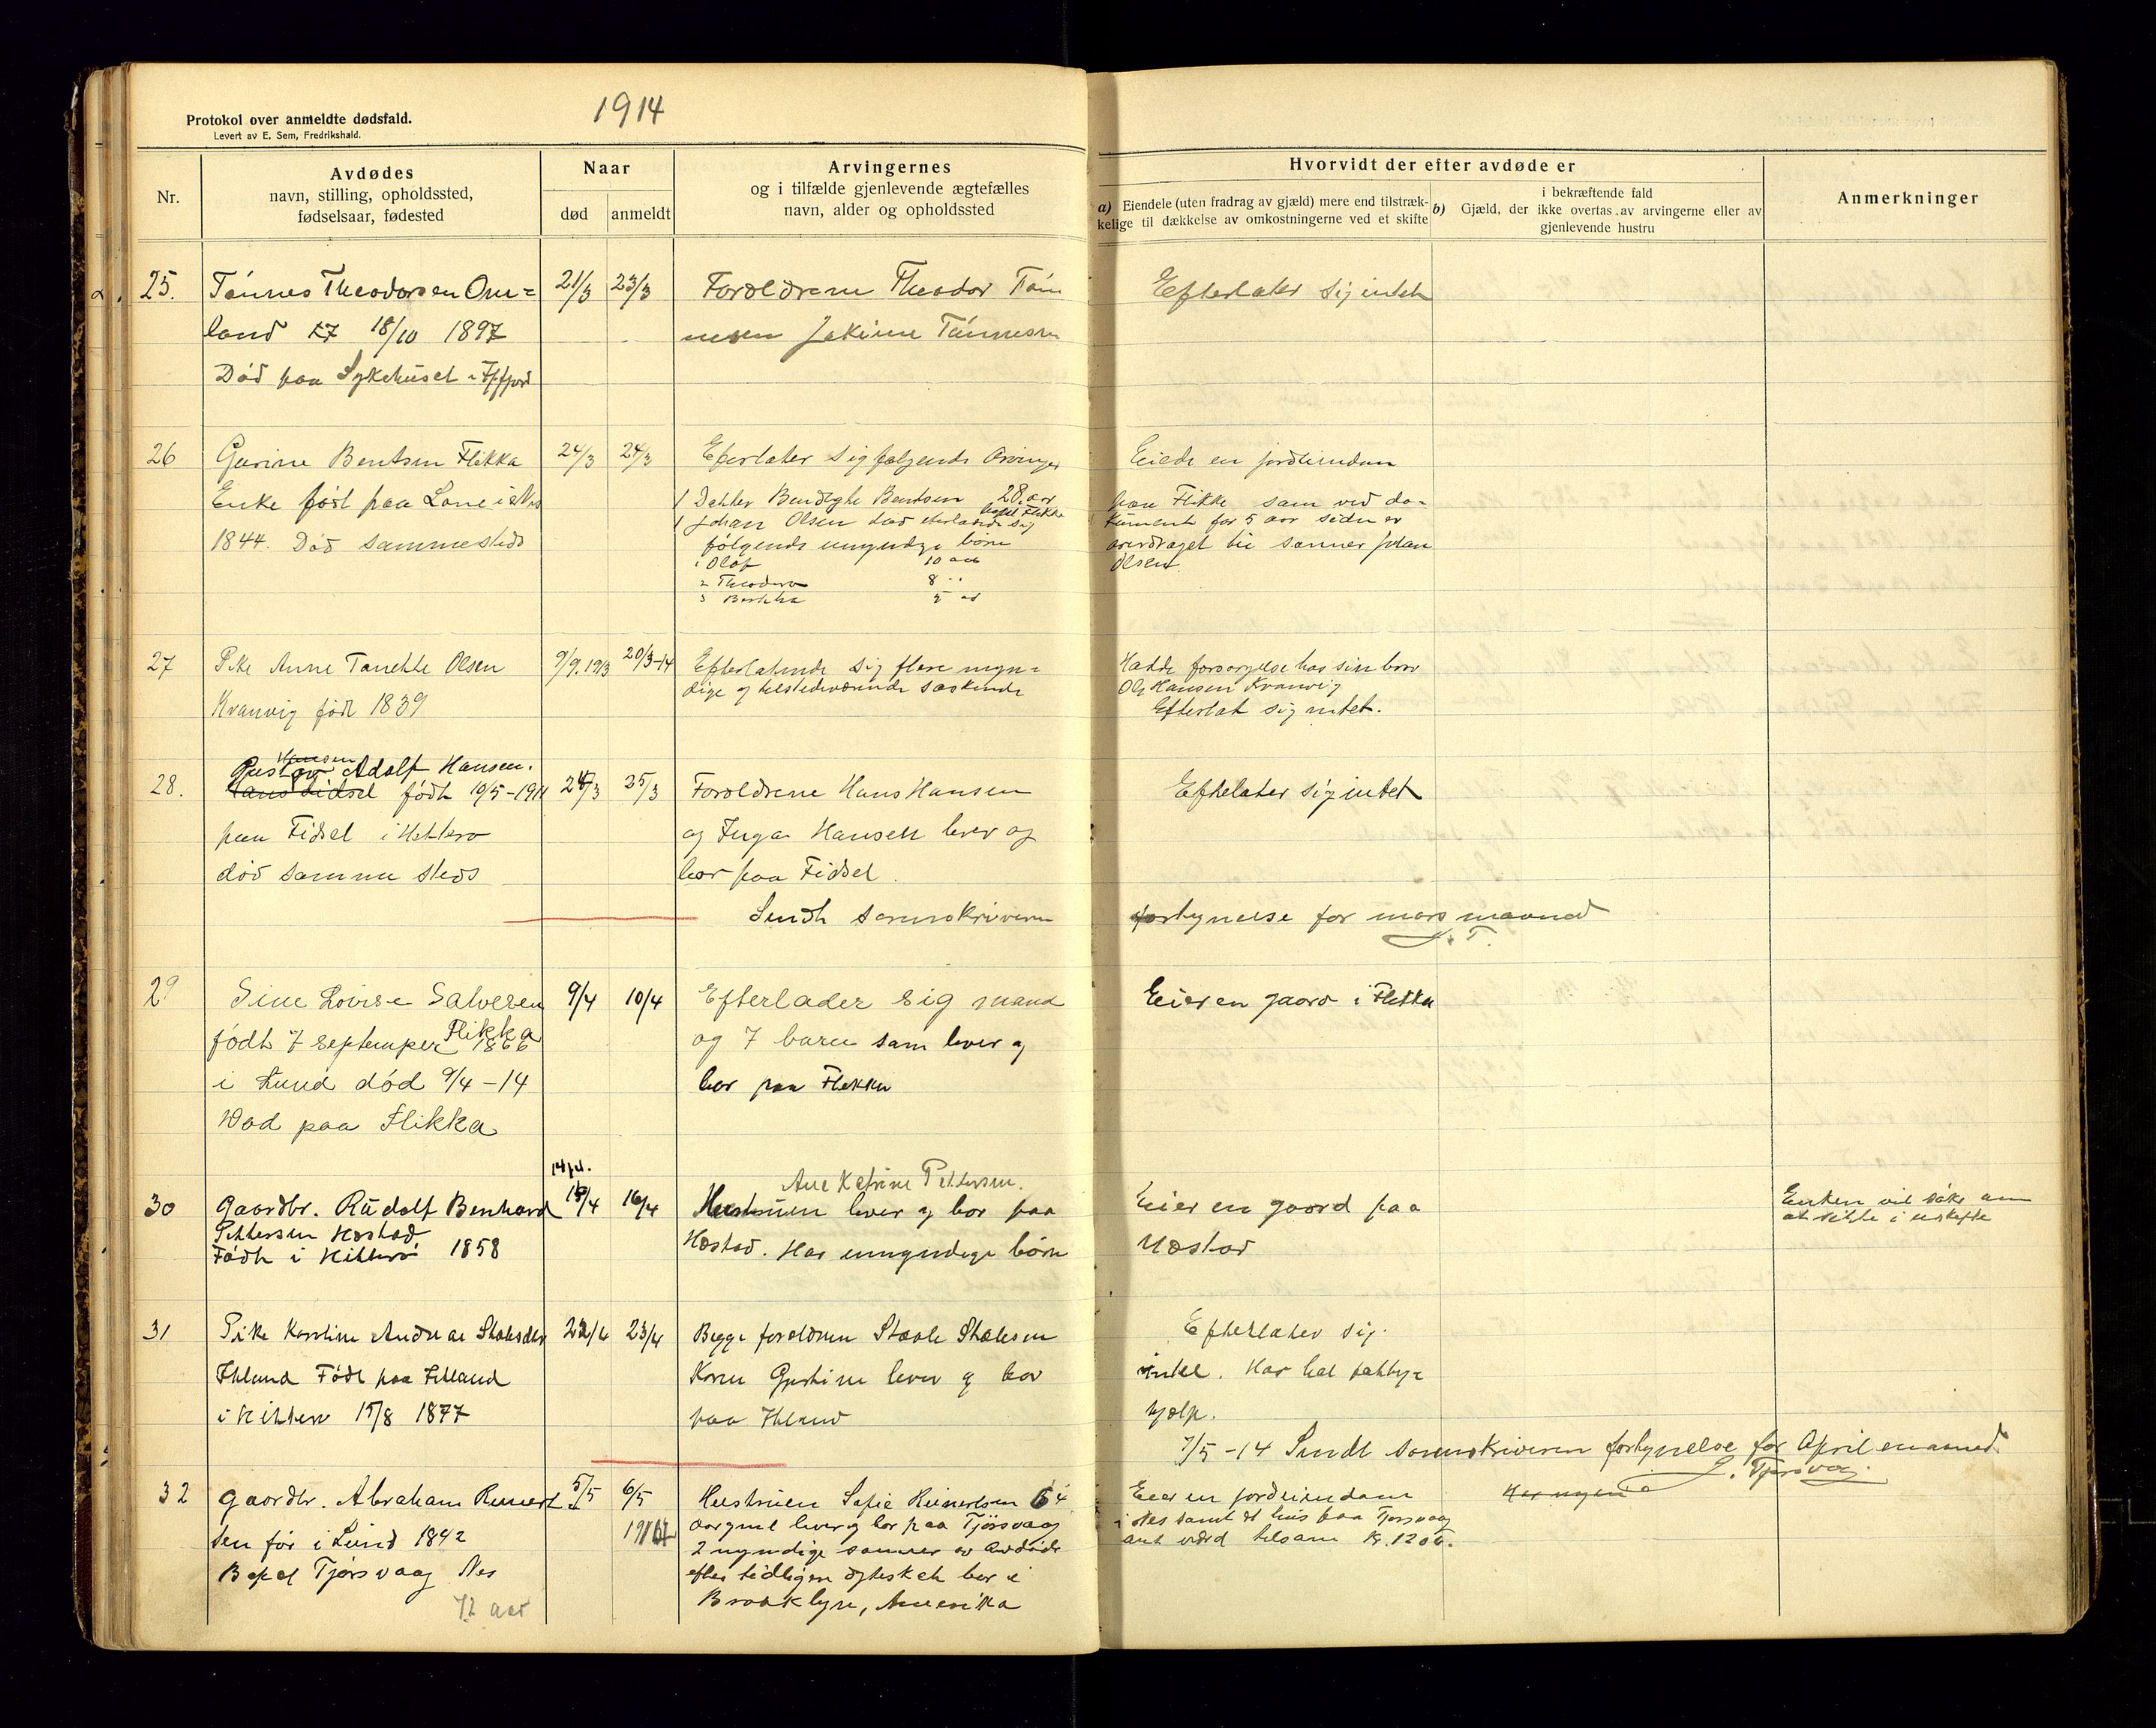 1914
Protokol over anmeldte dødsfald.
Levert av E. Sem, Fredrikshald.
Nr.
Avdødes
navn, stilling, opholdssted,
fødselsaar, fødested
Naar
død
anmeldt
Arvingernes
og i tilfælde gjenlevende ægtefælles
navn, alder og opholdssted
Hvorvidt der efter avdøde er
a) Eiendele (uten fradrag av gjæld) mere end tilstræk-
kelige til dækkelse av omkostningerne ved et skifte
b)
i bekræftende fald
Gjæld, der ikke overtas av arvingerne eller av
gjenlevende hustru
Anmerkninger
25.
Tønnes Theodorsen Om=
land 18/10 1897
Død paa Sykehuset
21/3
23/3
Foreldrene Theodor Tøn
nesen Jakine Tønnesen
Efterlater sig intet
26
Gurine Bentsen Flikka
Enke født paa Lone i Nes
1844. Død sammesteds
24/3
24/3
Eferlater sig følgende Arvinger
1 Datter Bendigte Bentsen 28 aar
bopæl Flikke
1 Johan Olsen død eterladende sig
følgende umyndige børn
1 Olaf 10 aar
2 Theodora 8 "
3 Bertha 5 aar
Eiede en jordeiendom
paa Flikke som ved do-
kument for 5 aar siden er
overdraget til sønnen Johan
Olsen.
27
Pike Anne Tonette Olsen
Kvanvig født 1839
9/9. 1913
20/3-14
Efterlatende sig flere myn=
dige og tilstedeværende søskende
Hadde forsørgelse hos sin bror
Ole Hansen Kvanvig
Efterlot sig intet.
28.
Hansen
Gustav Adolf Hansen.
født 10/5-1911
paa Fidsel i Hittero
død samme steds
24/3
25/3
Foreldrene Hans Hansen
og Inga Hansen lever og
bor paa Fidsel.
Eftelater sig intet
Sendt sorenskriveren
fortegnelse for mars maaned
J. T.
29
Sine Lovise Salvesen
Flikka
født 7 september 1866
i Lund död 9/4-14
Död paa Flikka
9/4
10/4
Efterlader sig mand
og 7 barn som lever og
bor paa Flikka
Eier en gaard i Flikka
30
Gaardbr. Rudolf Benhard
Pettersen Hestad
Født i Hitterø 1858
14/4.
15/4
16/4
Ane Katrine Pettersen.
Hustruen lever og bor paa
Hestad. Har umyndige børn
Eier en gaard paa
Hestad
Enken vil søke om
at sitte i uskifte
31
Pike Karoline Andrea Stalesdtr
Ihland Født paa Ihland
i Hitterø 15/8 1877
22/4
23/4
Begge foreldren Staale Stalesen
Karen Gurtine lever og bor
paa Ihland
Efterlater sig
intet. Har hat fattig=
hjelp.
7/5-14 Sendt sorenskriveren fortegnelse for April maaned
J. Tjørsvaag
32
Gaardbr. Abraham Reinert
sen før i Lund 1842
Bopæl Tjørsvaag Nes
72 aar
5/5
6/5
1914
Hustruen Sofie Reinertsen 64
aar gml lever og bor paa Tjörsvaag
2 myndige sønner av avdøde
efter tidligere ægteskab bor i
Brooklyn, Amerika
Eier en jordeiendom
i Nes samt et hus paa Tjorsvaag
ant værd tilsam Kr. 1200.
Har ingen